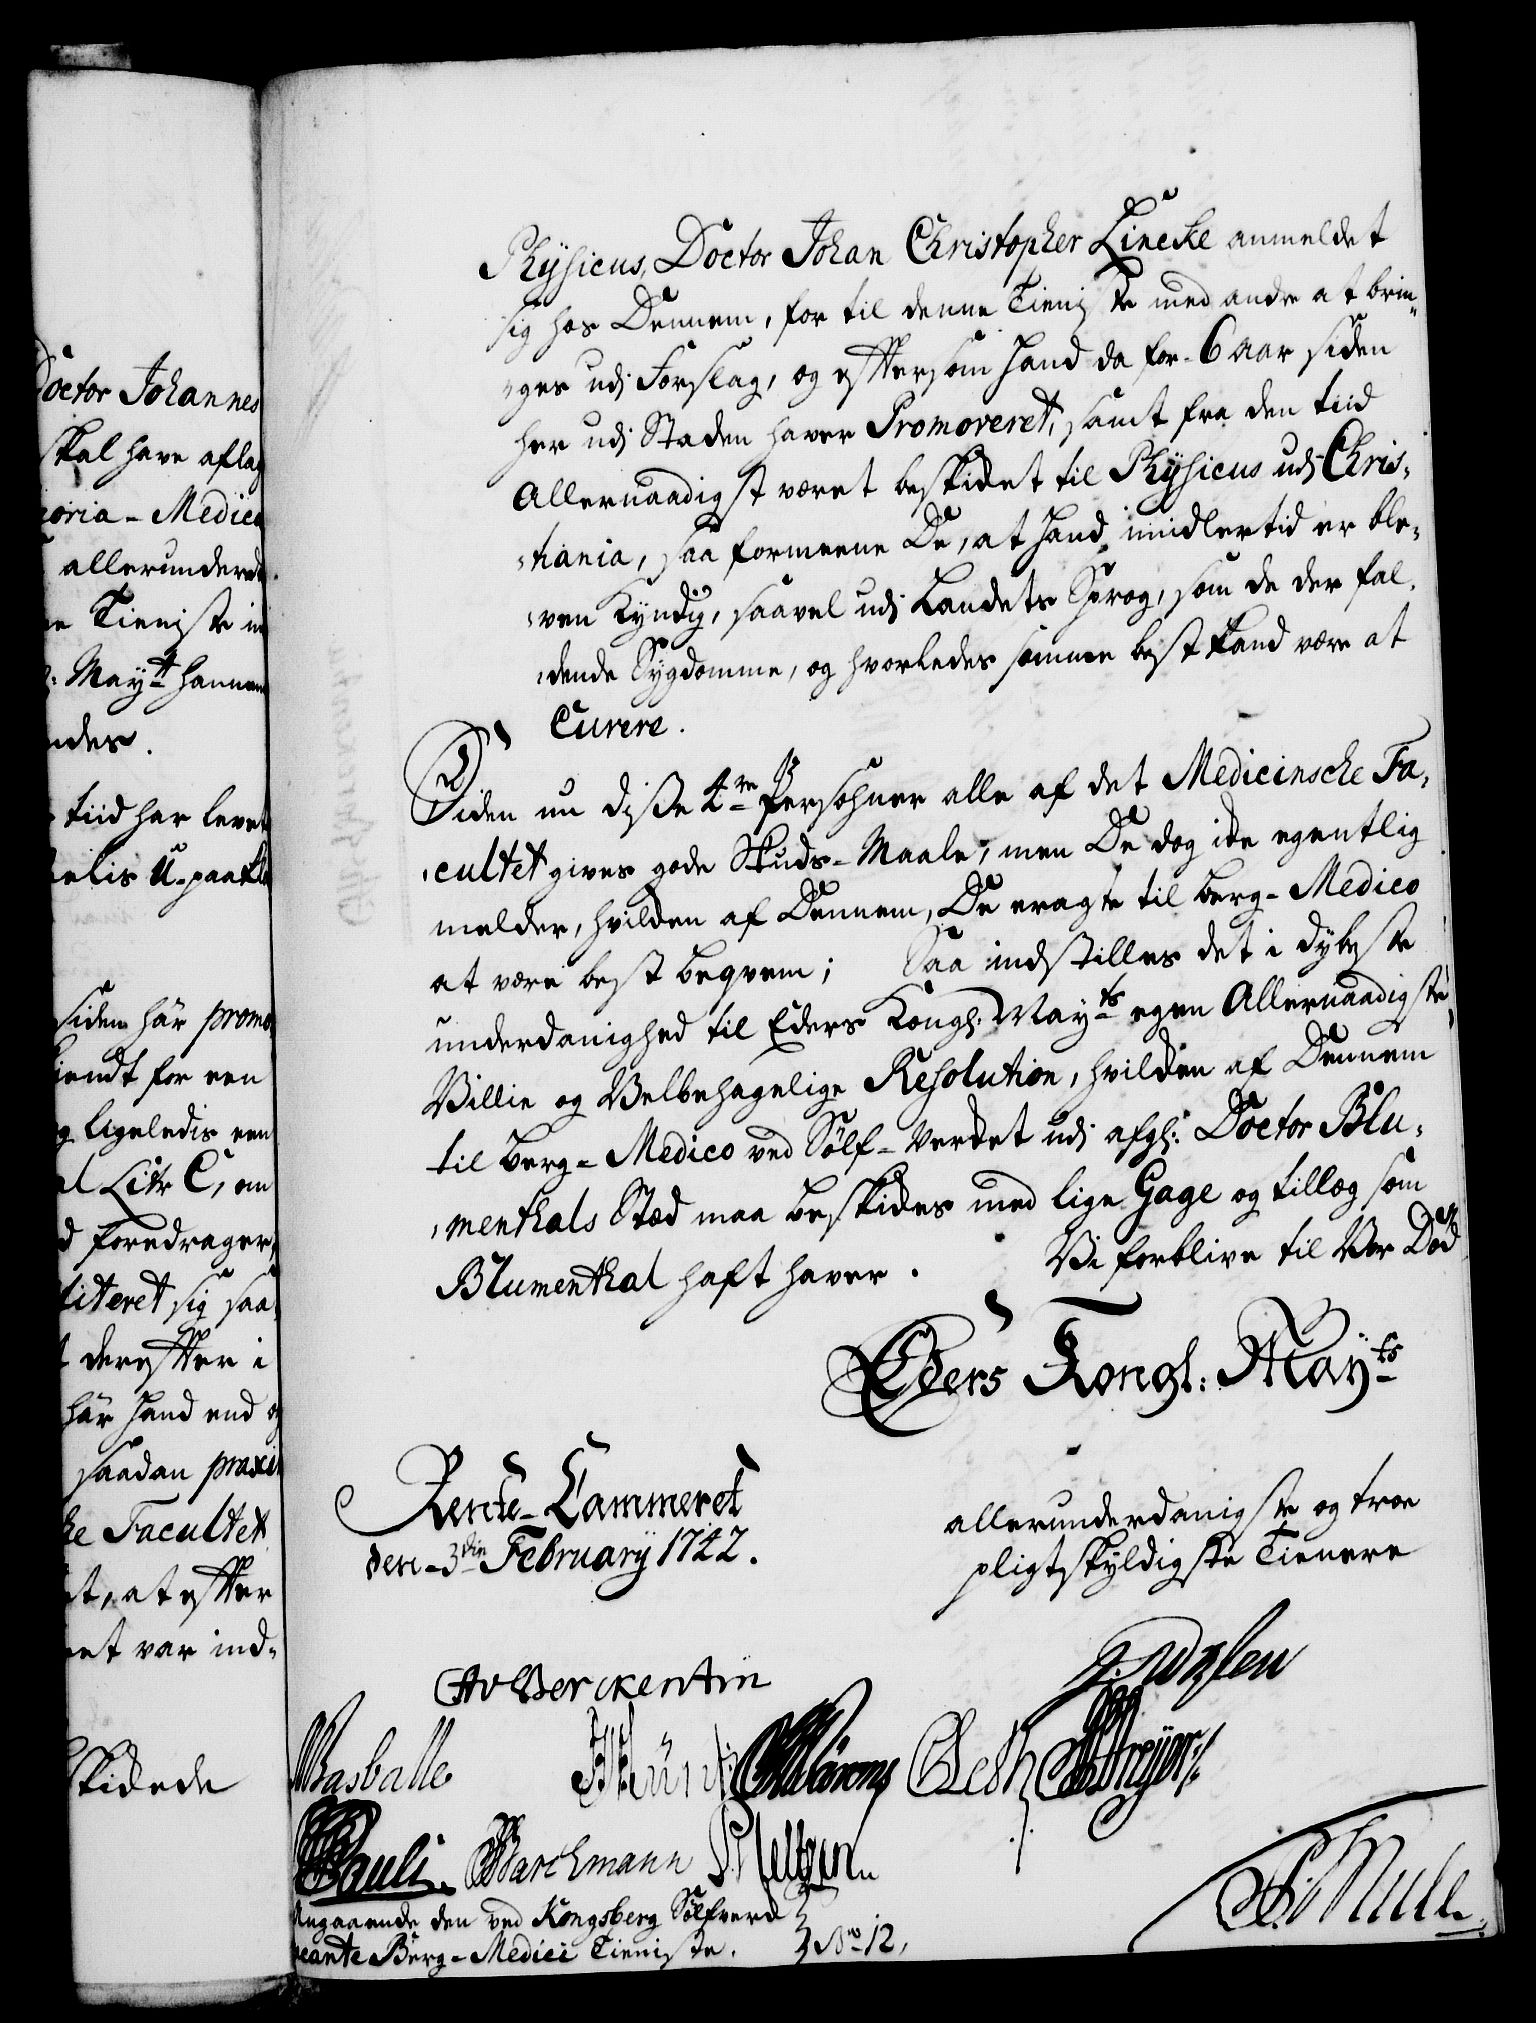 Doctor Johannes
skal have aflag
toria - Medica
allerunderd
ne Tieniste in
May:tt hannem
ndes.
tiid har levet
delis U-paakla
siden här promo
kiendt for een
og ligeledis een
al Litr C, om
d foredrager,
titeret sig saa,
t derefter i
här hand end og
saadan praxin
he Facultet
et, at efter
eet var ind=
skidede
Physicus, Doctor Johan Christopher Linecke anmeldet
sig hos Dennem, for til denne Tieniste med andre at brin,,
,,ges udj Forslag, og eftersom hand da for-6 aar siden
her udj Staden haver Promoveret, samt fra den tiid
Allernaadigst været beskicket til Physicus udj Chris,,
,,tiania, saa formeene De, at hand imidlertid er ble,,
,,ven kyndig, saavel udj Landets Sprog, som de der fal,,
,,dende Sygdomme, og hvorledes samme best kand være at
Curere.
Siden nu disse 4re Persohner alle af det Medicinsche Fa,,
,,cultet gives gode Skuds-Maale, men De dog icke egentlig
melder, hvilcken af Dennem, De eragte til berg-Medico
at være best beqvem; Saa indstilles det i dybeste
underdanighed til Eders Kongl: May:ts egen Allernaadigste
Villie og Velbehagelige Resolution, hvilcken af Dennem
til berg-Medico ved Sølf-Verket udj afgl: Doctor Blu,,
,,menthals Stæd maa beskickes med lige Gage og tillæg som
Blumenthal haft haver. Vi forblive til Vor Død
Eders Kongl: May:ts
Rente-Cammeret
den-3die February 1742.
allerunderdanigste og troe
pligtskyldigste Tienere
Berckentin
Basballe
Pauli. Barchmann
Mule.
Angaaende den ved Kongsberg Sølfverck
vacante Berg-Medici Tieniste. No 12,